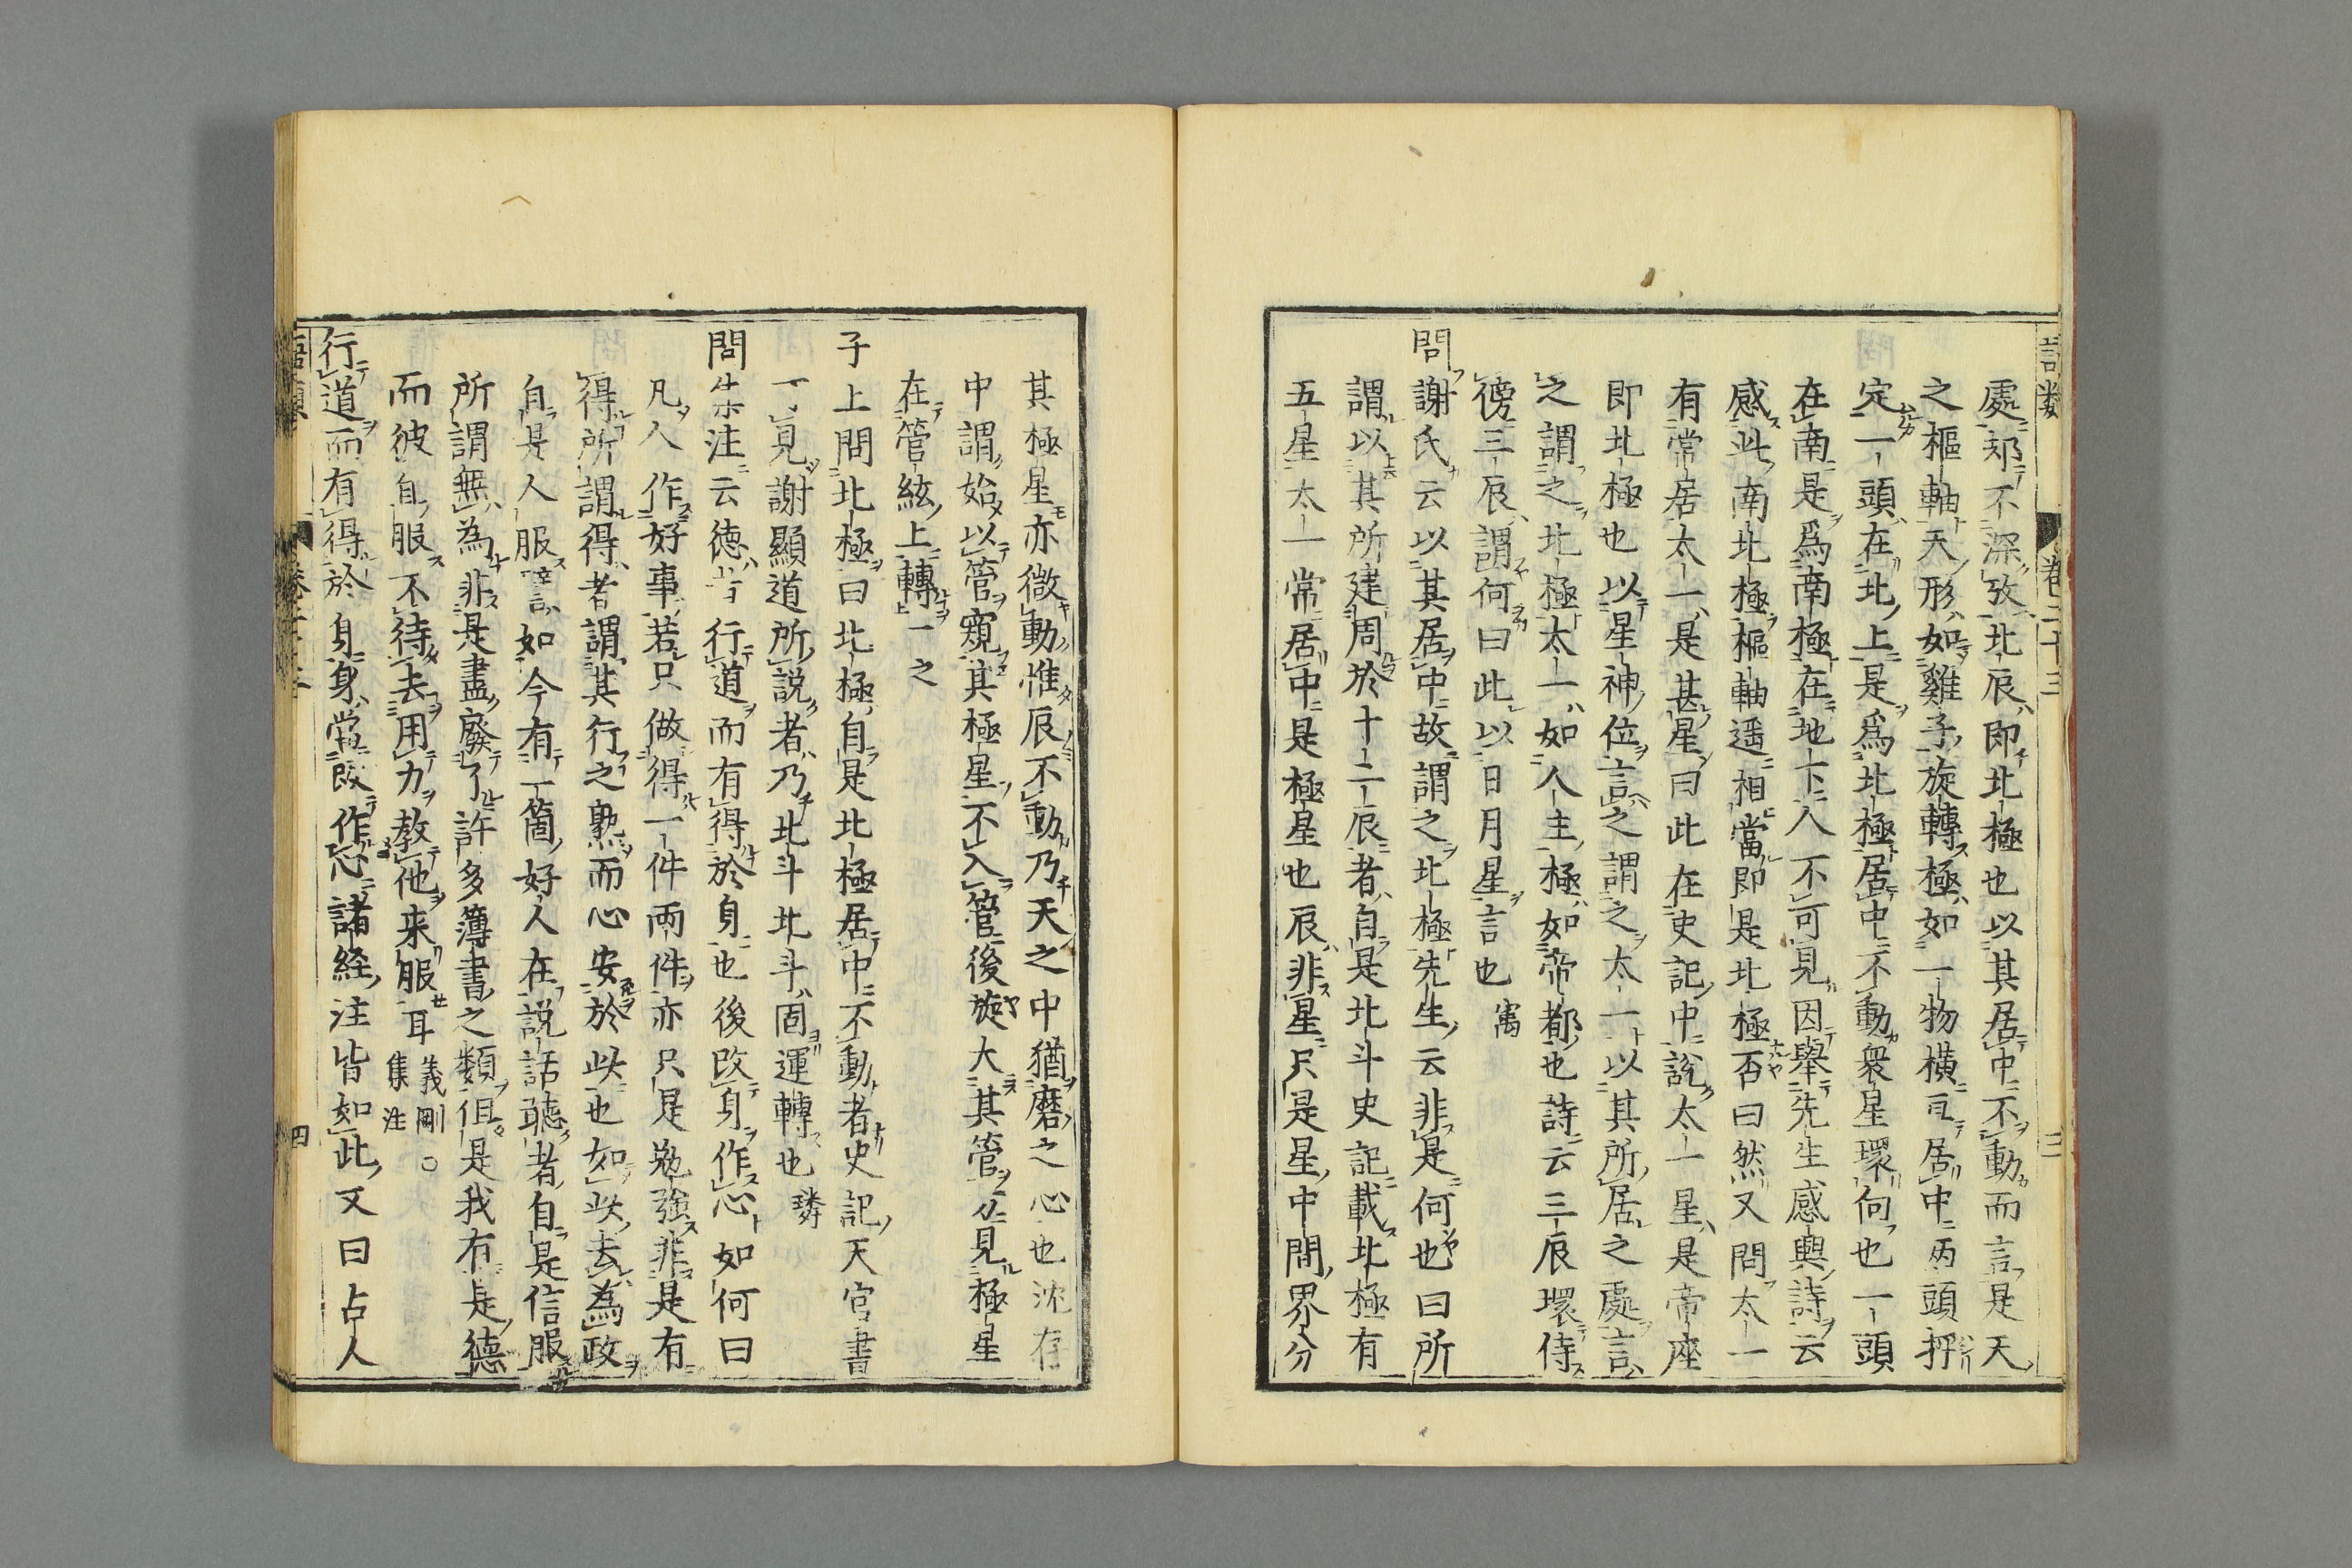 處却不深攷北辰即北極也以其居中不動而言是天
之樞軸天形如雞子旋轉極如一物横亘居中兩頭抨
定一頭在北上是爲北極居中不動衆星環向也一頭
在南是爲南極在地下人不可見因舉先生感興詩云
感此南北極樞軸遥相當即是北極否曰然又問太一
有常居太一是甚星曰此在史記中說太一星是帝座
即北極也以星神位言之謂之太一以其所居之處言
之謂之北極太一如人主極如帝都也詩云三辰環侍
傍三辰謂何曰此以日月星言也 㝢
問謝氏云以其居中故謂之北極先生云非是何也曰所
謂以其所建周於十二辰者自是北斗史記載北極有
五星太一常居中是極星也辰非星只是星中間界分
其極星亦微動惟辰不動乃天之中猶磨之心也沈存
中謂始以管窺其極星不入管後旋大其管方見極星
在管絃上轉一之
子上問北極曰北極自是北極居中不動者史記天官書
可見謝顯道所説者乃北斗北斗固運轉也 璘
問集注云德者行道而有得於身也後改身作心如何曰
凡人作好事若只做得一件兩件亦只是勉強非是有
得所謂得者謂其行之熟而心安於此也如此去為政
自是人服譬言如今有一箇好人在説話聽者自是信服
所謂無為非是盡廢了許多簿書之類但是我有是德
而彼自服不待去用力教他来服耳 義剛○
集注
行道而有得於身身當改作心諸經注皆如此又曰古人
語類 卷二十三 三
語類 卷二十三 四